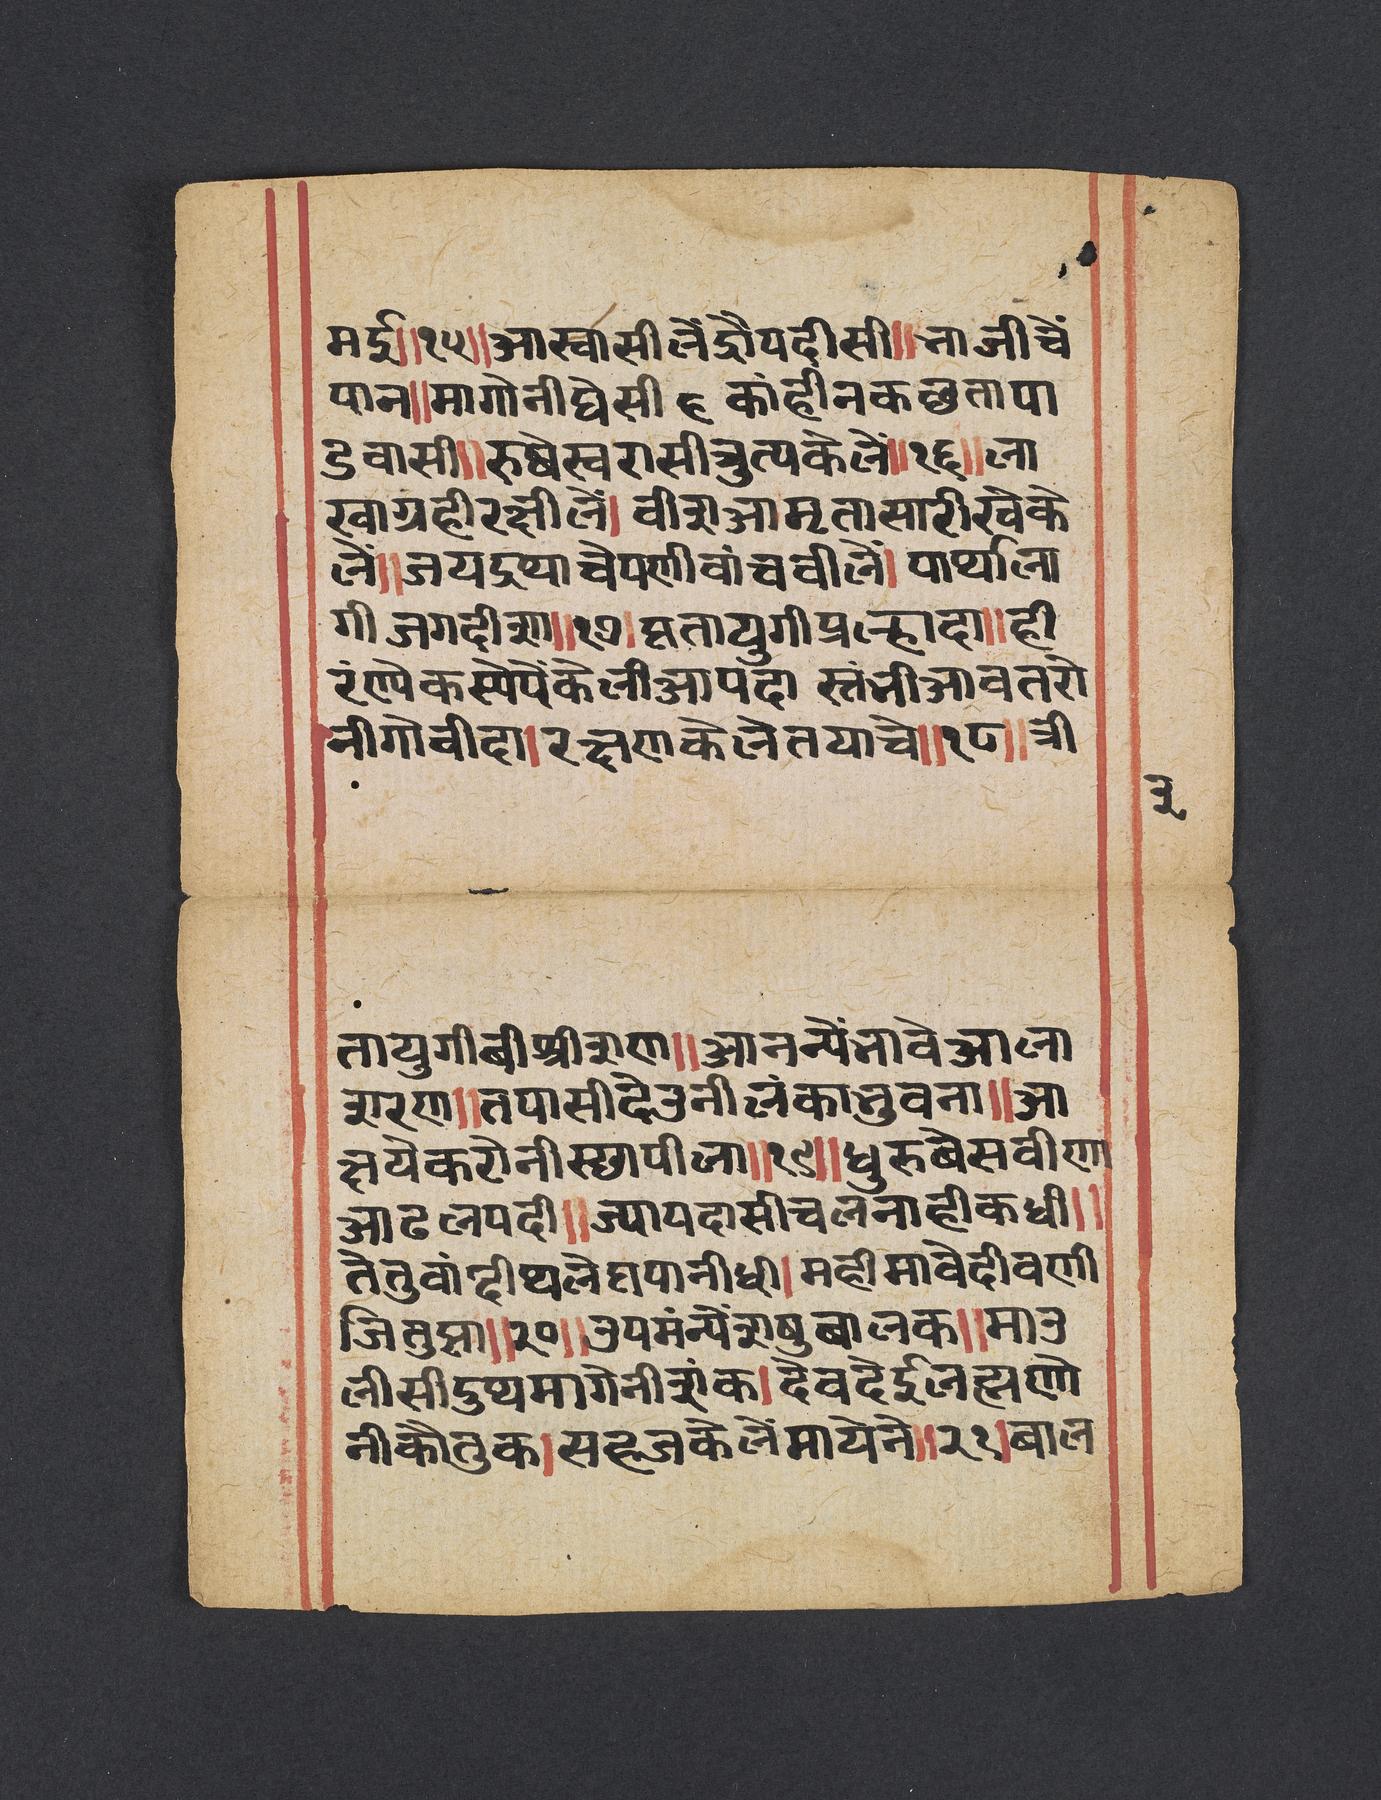 मर्दु॥१५॥आस्वासीलेंद्रौपदीसी॥नाजीचें
पान॥मागोनीघेसी ह कांहींनकछतापा
डवासी॥रुषैस्वरासीत्रुत्यकेलें॥१६॥ला
खाग्रहीरक्षीलें। वीशआमृतासारीखेके
लें॥जयद्रथाचेपणीवांचवीलें। पार्थाला
गी जगदीशा॥१७।क्रतायुगीप्रल्हादा॥ही
रंण्येकस्पेपेंकेलीआपदा स्तंभीआवतरो
नीगोवीदा।रक्षणकेलेतयाचे॥१८॥त्री
३
तायुगीबीभ्रीशण॥आनन्येंभावेआला
शरण॥तपासीदेउनीलंकाभुवना॥आ
क्षयेकरोनीस्छापीला॥१९॥ध्रुरुबैसवीला
आढलपदी॥ज्यापदासीचलनाहीकधी॥
तेतुवांदीधलेक्रपानीधी। महीमावेदीवर्णी
जितुझा॥२०॥उपमंन्येंशषुबालक॥माउ
लीसीदुधमागेनीशंक। देवदेर्दुलह्मणो
नीकौतुक।सहजकेलेंमायेने॥२१।बाल